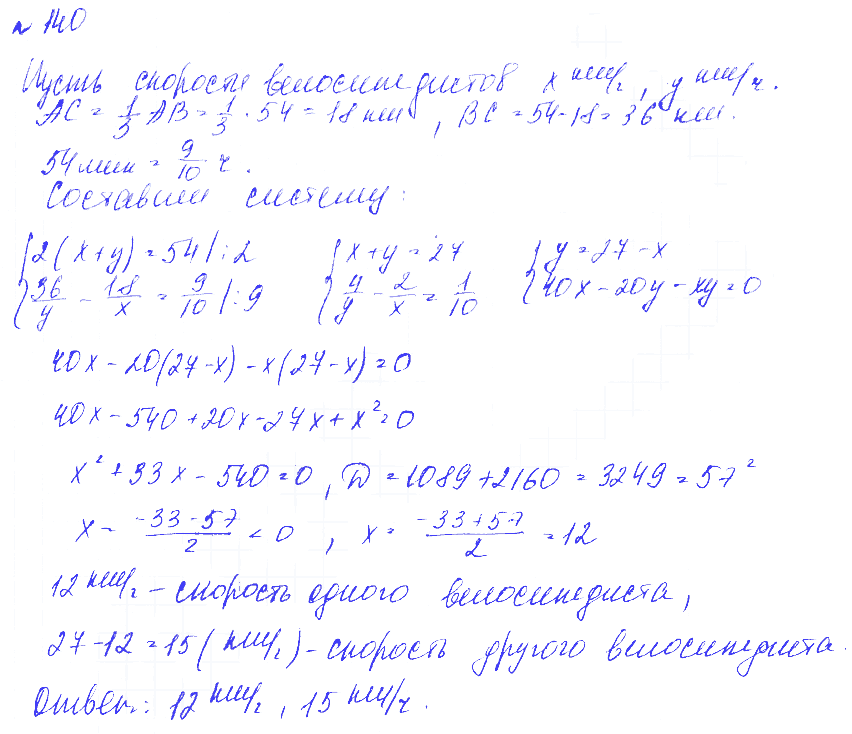 № 140
Пусть скорости велосипедистов x км/ч, y км/ч.
AC = 1/3 AB = 1/3 · 54 = 18 км, BC = 54 - 18 = 36 км.
54 мин = 9/10 ч.
Составим систему:
{ 2(x+y) = 54 |:2 { x+y = 27 { y = 27 - x
{ 36/y - 18/x = 9/10 |:9 { 4/y - 2/x = 1/10 { 40x - 20y - xy = 0
40x - 20(27-x) - x(27-x) = 0
40x - 540 + 20x - 27x + x² = 0
x² + 33x - 540 = 0, D = 1089 + 2160 = 3249 = 57²
x = (-33-57)/2 < 0, x = (-33+57)/2 = 12
12 км/ч - скорость одного велосипедиста,
27 - 12 = 15 (км/ч) - скорость другого велосипедиста.
Ответ: 12 км/ч, 15 км/ч.